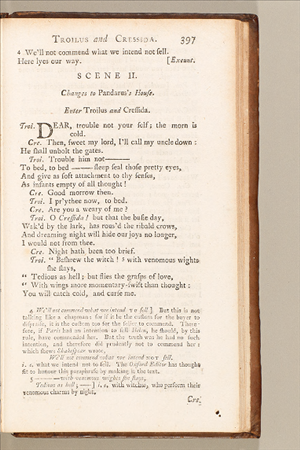 TROILUS and CRESSIDA. 397
4 We'll not commend what we intend not sell.
Here lyes our way. [Exeunt.
SCENE II.
Changes to Pandarus's House.
Enter Troilus and Cressida.
Troi. DEAR, trouble not your self; the morn is
cold.
Cre. Then, sweet my lord, I'll call my uncle down:
He shall unbolt the gates.
Troi. Trouble him not——
To bed, to bed —— sleep seal those pretty eyes,
And give as soft attachment to thy senses,
As infants empty of all thought!
Cre. Good morrow then.
Troi. I pr'ythee now, to bed.
Cre. Are you a weary of me?
Troi. O Cressida! but that the busie day,
Wak'd by the lark, has rous'd the ribald crows,
And dreaming night will hide our joys no longer,
I would not from thee.
Cre. Night hath been too brief.
Troi. " Beshrew the witch! 5 with venomous wights
she stays,
" Tedious as hell; but flies the grasps of love,
" With wings more momentary-swift than thought:
You will catch cold, and curse me.
4 We'll not commend what we intend TO sell.] But this is not
talking like a chapman: for if it be the custom for the buyer to
dispraise, it is the custom too for the seller to commend. There-
fore, if Paris had an intention to sell Helen, he should, by this
rule, have commended her. But the truth was he had no such
intention, and therefore did prudently not to commend her:
which shews Shakespear wrote,
We'll not commend what we intend NOT sell.
i. e. what we intend not to sell. The Oxford Editor has thought
fit to honour this paraphrase by making it the text.
5 —— with venomous wights she stays,
Tedious as hell; ——] i. e. with witches, who perform their
venomous charms by night.
Cre.